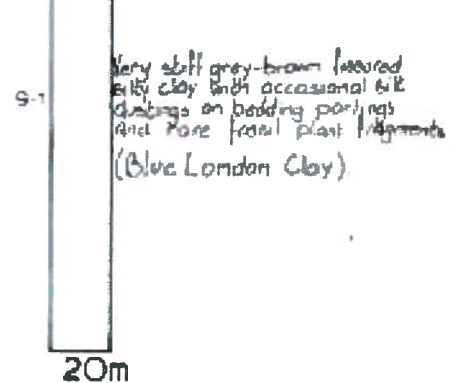 Very stiff grey-brown fissured
silty clay with occasional silt
dustings on bedding partings
and rare fossil plant fragments
(Blue London Clay)
20m